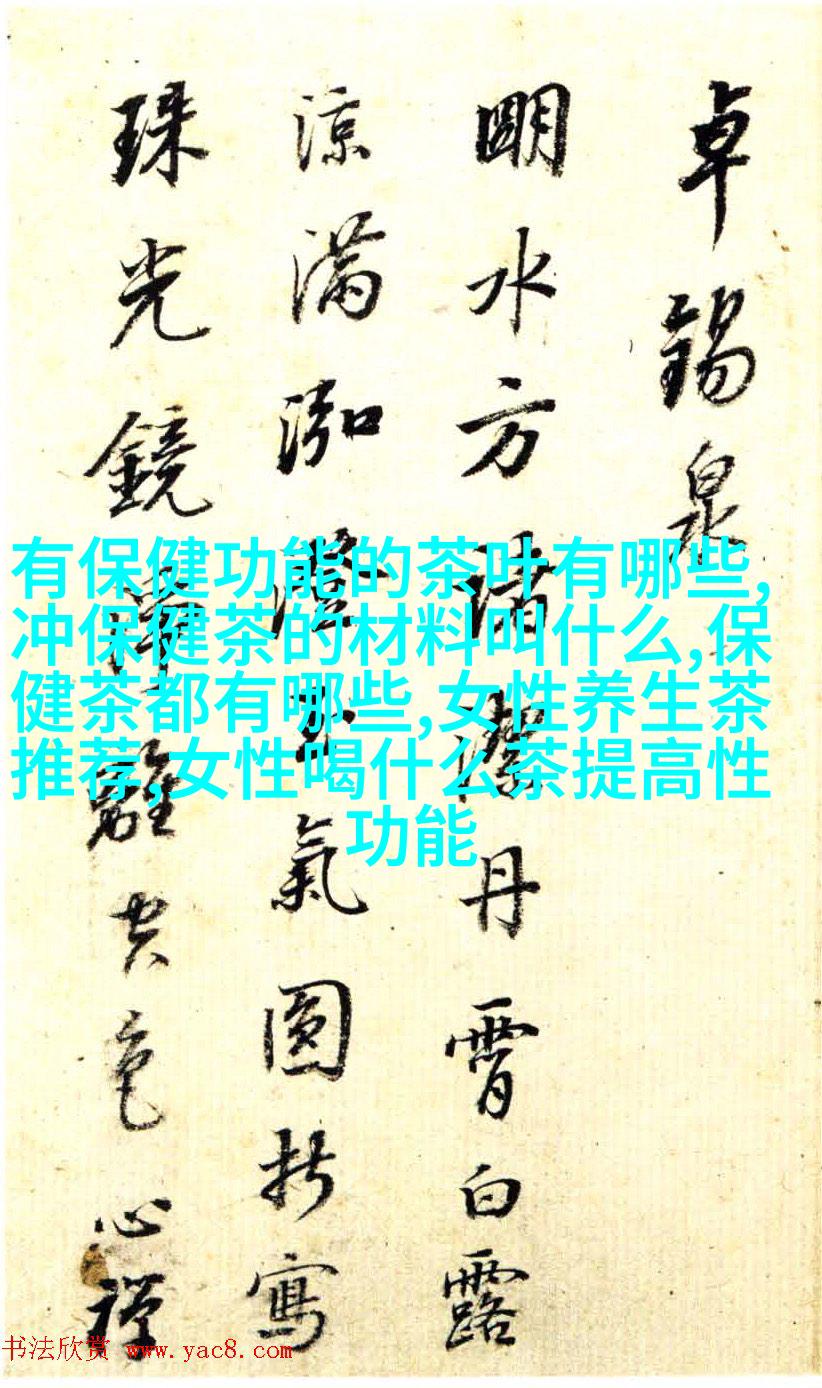 卓錫泉
明水方潔丹霄白露
凉滿泓澄氣圓折寫
珠光鏡離空色心禪
有保健功能的茶叶有哪些,
冲保健茶的材料叫什么,保
健茶都有哪些,女性养生茶
推荐,女性喝什么茶提高性
功能
书法欣赏 www.yac8.com